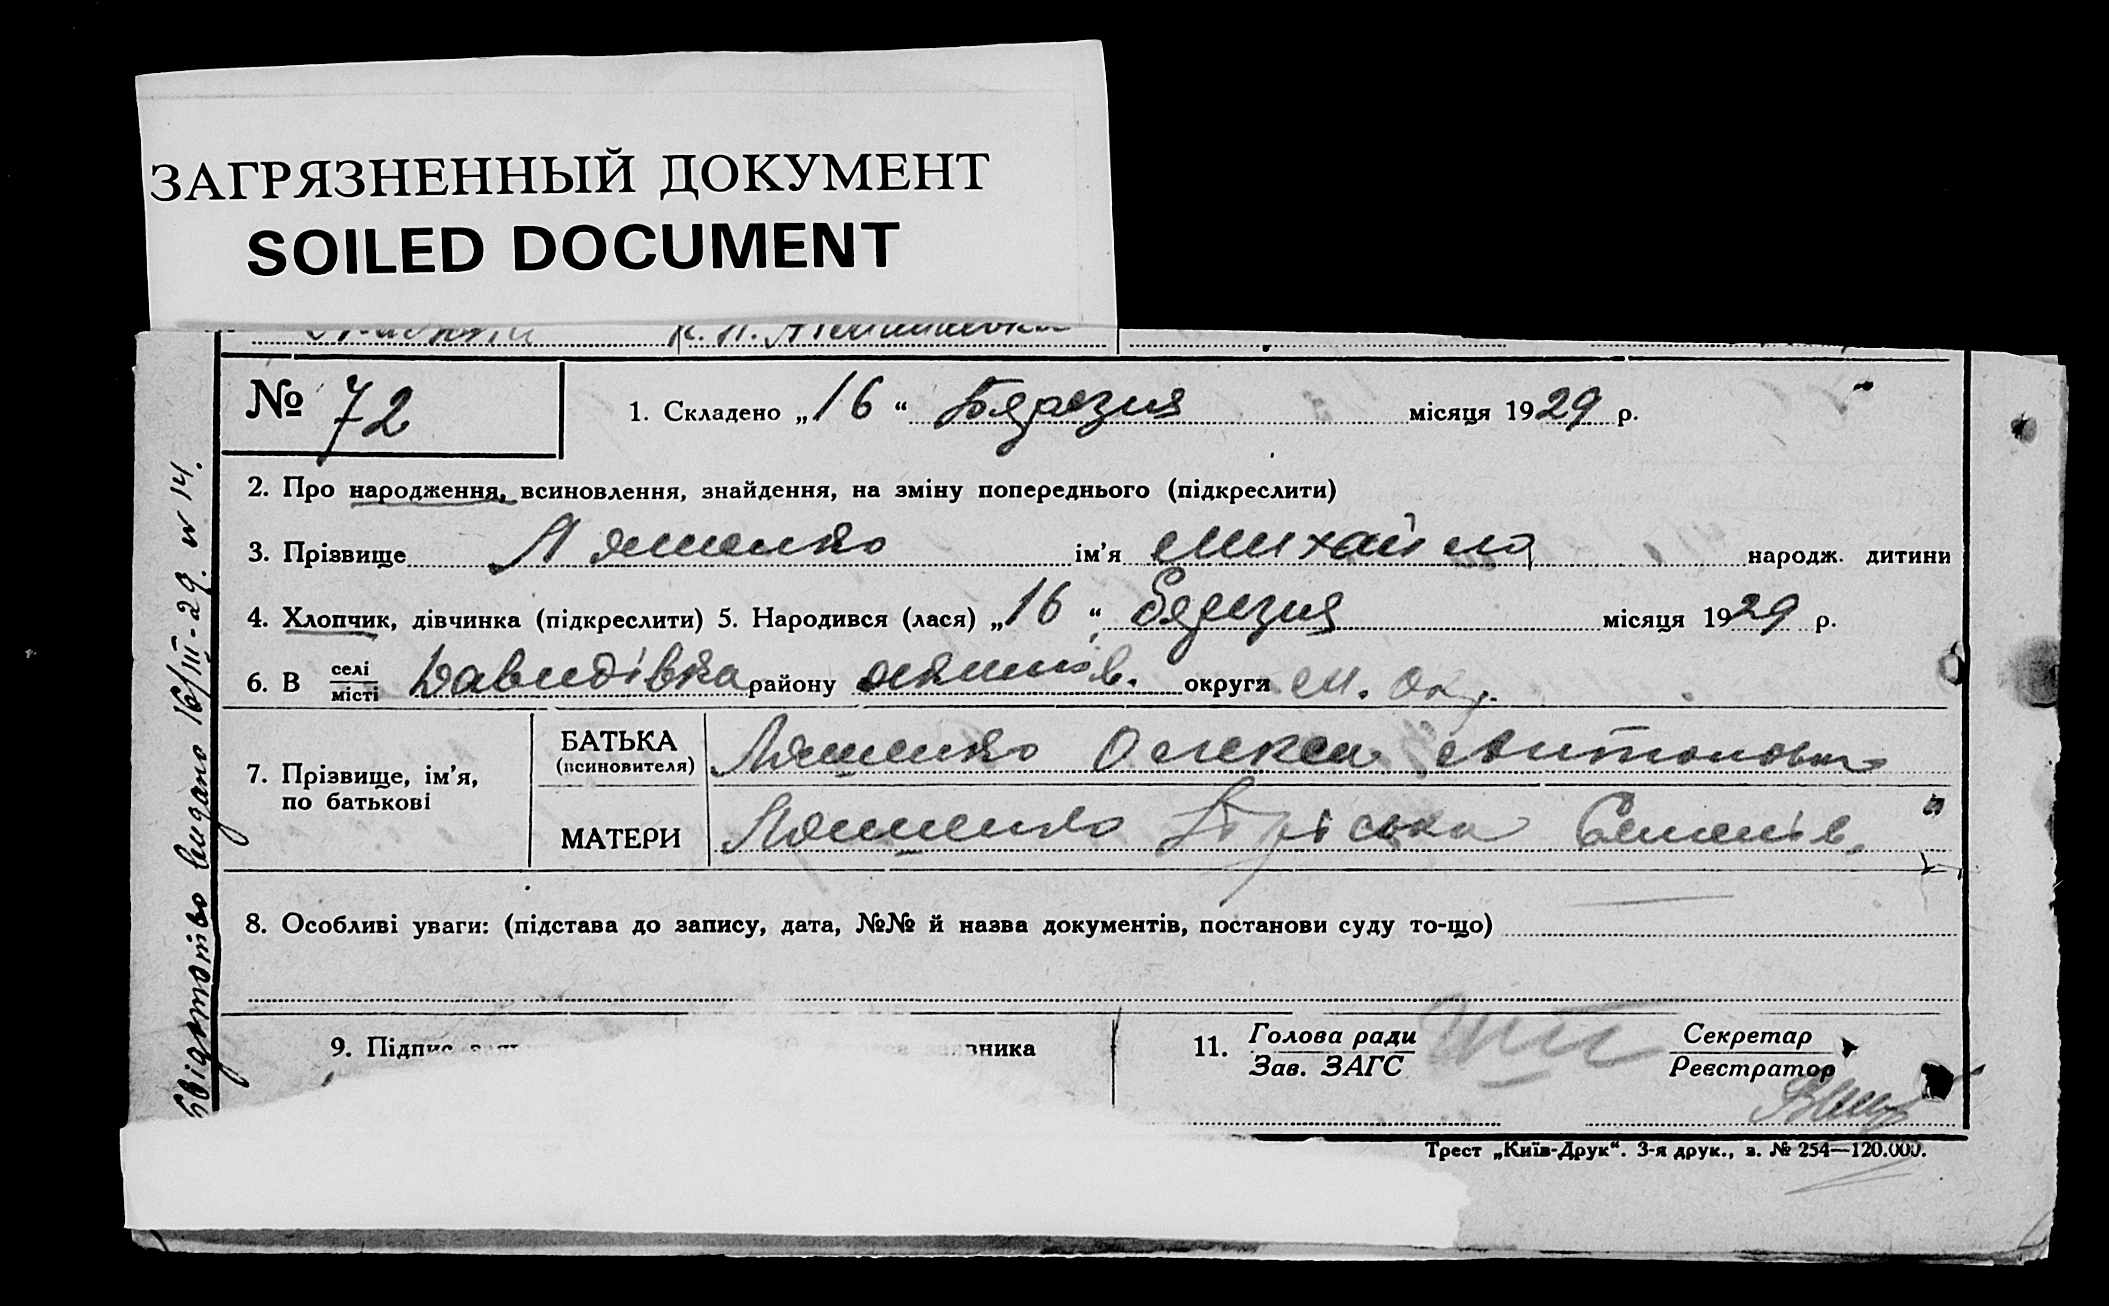 ЗАГРЯЗНЕННЫЙ ДОКУМЕНТ
SOILED DOCUMENT
№ 72
1. Складено „16“ Бярезня місяця 1929 р.
2. Про народження, всиновлення, знайдення, на зміну попереднього (підкреслити)
3. Прізвище Ляшенко ім’я Михайло народж. дитини
4. Хлопчик, дівчинка (підкреслити) 5. Народився (лася) „16“ Бярезня місяця 1929 р.
6. В селі місті Давидівка району округи М. Окр.
7. Прізвище, ім’я, по батькові
БАТЬКА (всиновителя) Ляшенко Олекса Антонович
МАТЕРИ Ляшенко Пріська Семенів.
8. Особливі уваги: (підстава до запису, дата, №№ й назва документів, постанови суду то-що)
9. Підпис
вника
11. Голова ради Зав. ЗАГС
Секретар Реєстратор
Трест „Київ-Друк“. 3-я друк., з. № 254—120.000.
Свідотство видано 16/III-29. N 14.